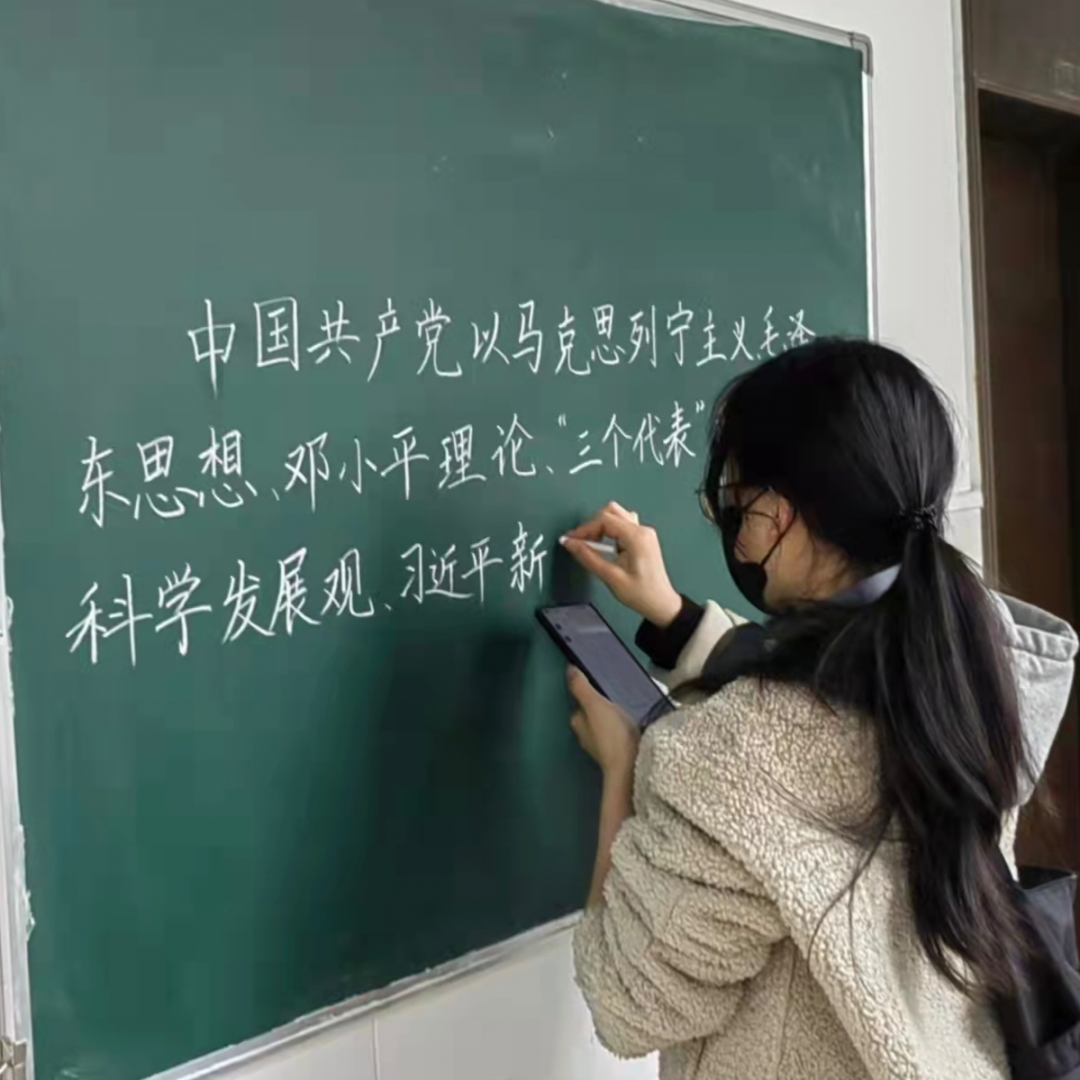 中国共产党以马克思列宁主义、毛泽
东思想、邓小平理论、“三个代表”
科学发展观、习近平新